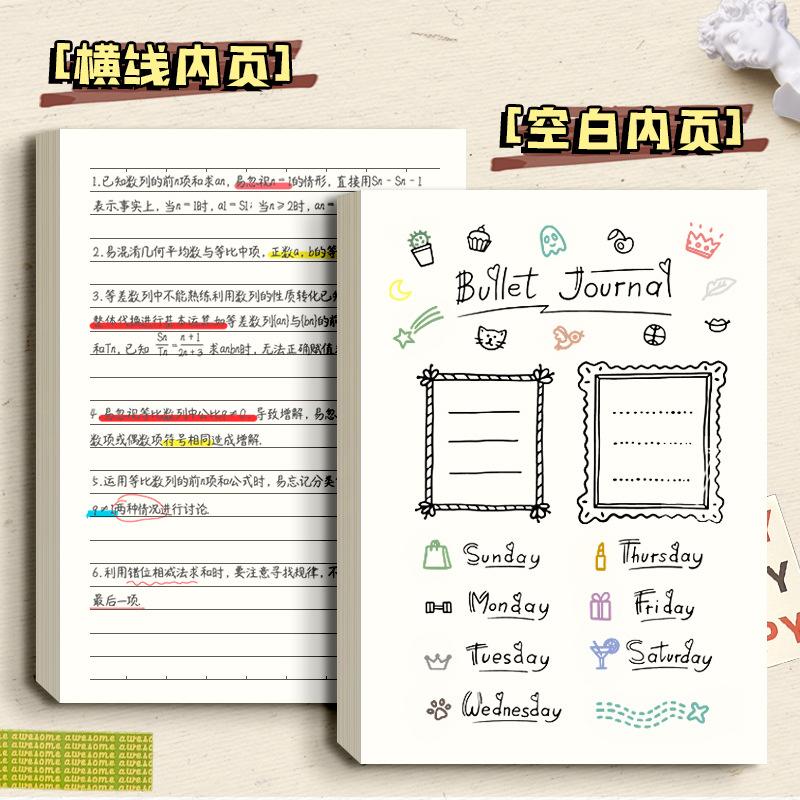 [横线内页]
[空白内页]
1.已知数列的前n项和求an, 易忽视n=1的情形, 直接用Sn-Sn-1
表示事实上, 当n=1时, a1=S1; 当n≥2时, an=
2.易混淆几何平均数与等比中项, 正数a, b的等
3.等差数列中不能熟练利用数列的性质转化已知
整体代换进行基本运算.如等差数列{an}与{bn}的前
和Tn, 已知 Sn/Tn=n+1/2n+3 求anbn时, 无法正确赋值
4 易忽视等比数列中公比q≠0, 导致增解, 易忽
数项或偶数项符号相同造成增解.
5.运用等比数列的前n项和公式时, 易忘记分类
q≠1两种情况进行讨论
6.利用错位相减法求和时, 要注意寻找规律, 不
最后一项.
Bullet Journal
Sunday
Monday
Tuesday
Wednesday
Thursday
Friday
Saturday
awesome awesome awesome awesome
Y
Y
PY